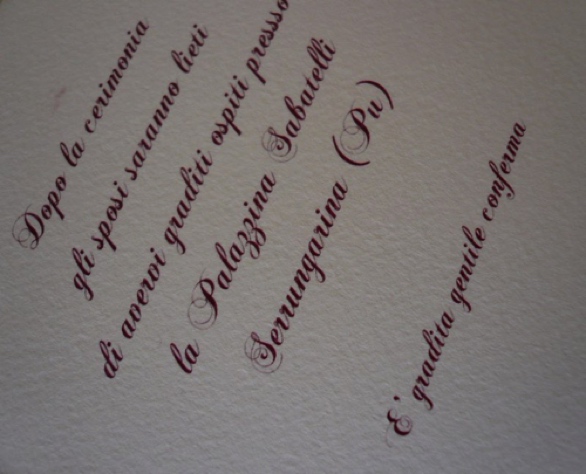 Dopo la cerimonia
gli sposi saranno lieti
di avervi graditi ospiti pressso
la Palazzina Sabatelli
Serrungarina (Pu)
E' gradita gentile conferma